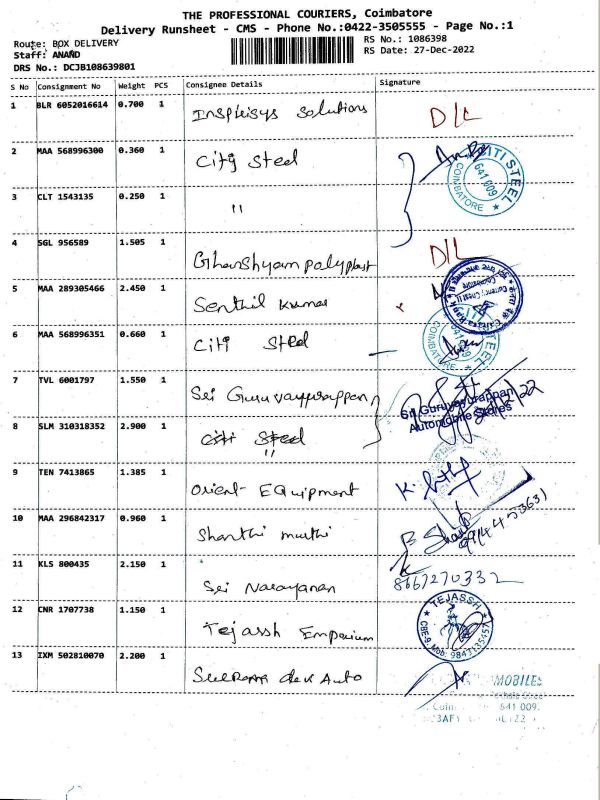 THE PROFESSIONAL COURIERS, Coimbatore
Delivery Runsheet - CMS - Phone No.:0422-3505555 - Page No.:1
Route: BOX DELIVERY
Staff: ANAND
DRS No.: DCJB108639801
RS No.: 1086398
RS Date: 27-Dec-2022
S No Consignment No Weight PCS Consignee Details Signature
1 BLR 6052016614 0.700 1 Inspirisys Solutions D/L
2 MAA 568996300 0.360 1 Citi Steel
CITI STEEL
641 009
COIMBATORE
3 CLT 1543135 0.250 1 "
4 SGL 956589 1.505 1 Ghanshyam polyplast D/L
5 MAA 289305466 2.450 1 Senthil kumar
6 MAA 568996351 0.660 1 Citi Steel
CITI STEEL
COIMBATORE
7 TVL 6001797 1.550 1 Sri Guruvayurappan
Sri Guruvayurappan
Automobile Stores
8 SLM 310318352 2.900 1 Citi Steel
"
9 TEN 7413865 1.385 1 Orient Equipment
10 MAA 296842317 0.960 1 Shanthi murthi
11 KLS 800435 2.150 1 Sri Narayanan 8667270332
12 CNR 1707738 1.150 1 Tejassh Emporium
TEJASSH
CBE-9
13 IXM 502810070 2.200 1
MOBILES
641 009.